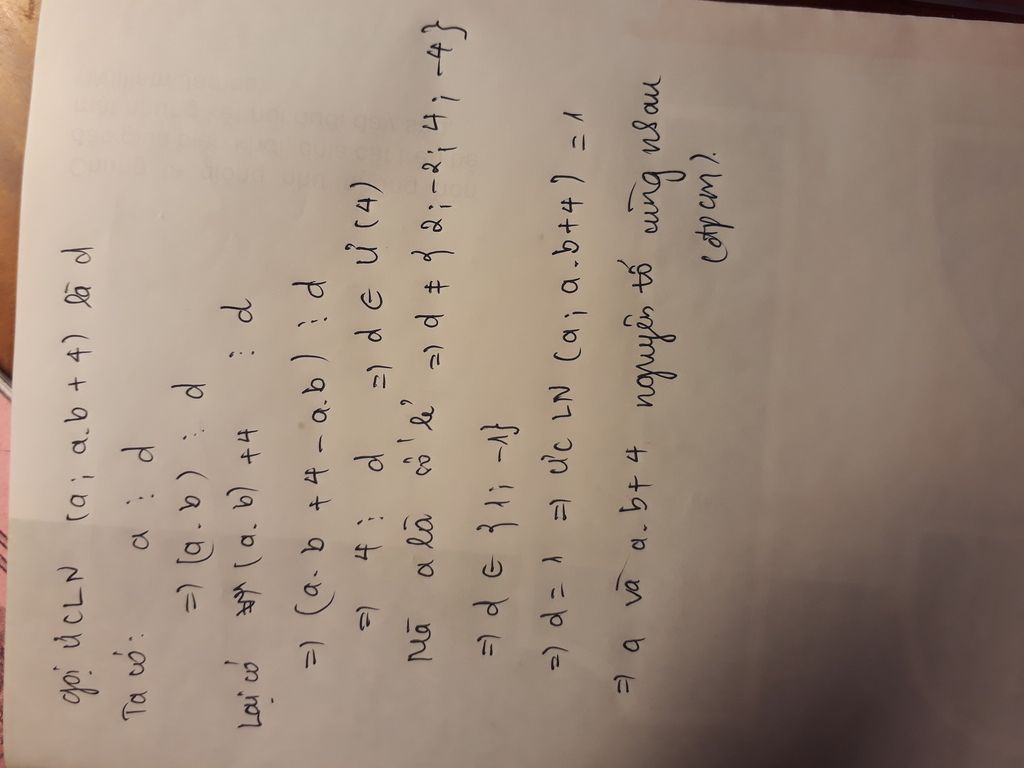 gọi ƯCLN (a; a.b + 4) là d
Ta có: a ⋮ d
=> (a.b) ⋮ d
Lại có (a.b) + 4 ⋮ d
=> (a.b + 4 - a.b) ⋮ d
=> 4 ⋮ d => d ∈ Ư (4)
Mà a là số lẻ => d ≠ {2; -2; 4; -4}
=> d ∈ {1; -1}
=> d = 1 => ƯCLN (a; a.b+4) = 1
=> a và a.b+4 nguyên tố cùng nhau
(đpcm).